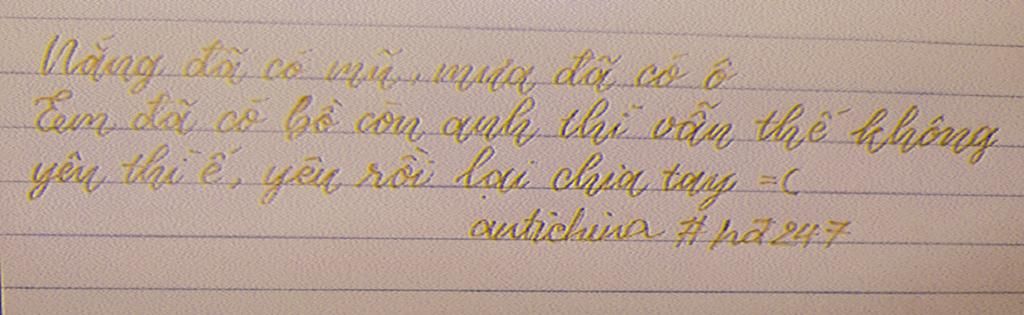 Nắng đã có mũ, mưa đã có ô
Em đã có bồ còn anh thì vẫn thế không
yêu thì ế, yêu rồi lại chia tay =(
antichina #hđ247